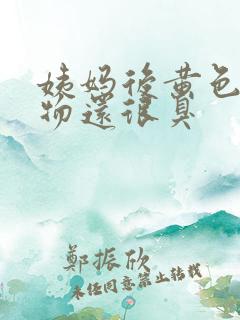 姨妈後黄色
物還很臭
鄭振欣
未经同意禁止转载